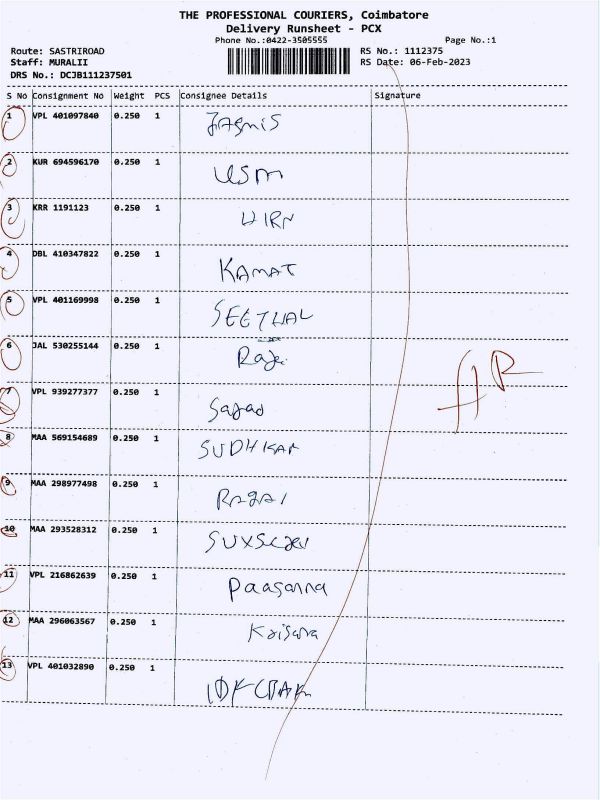 THE PROFESSIONAL COURIERS, Coimbatore
Delivery Runsheet - PCX
Phone No.:0422-3505555
Page No.:1
Route: SASTRIROAD
RS No.: 1112375
Staff: MURALII
RS Date: 06-Feb-2023
DRS No.: DCJB111237501
S No Consignment No Weight PCS Consignee Details Signature
1 VPL 401097840 0.250 1
2 KUR 694596170 0.250 1 USM
3 KRR 1191123 0.250 1 HIRN
4 DBL 410347822 0.250 1 KAMAT
5 VPL 401169998 0.250 1 SEETHAL
6 JAL 530255144 0.250 1
7 VPL 939277377 0.250 1
8 MAA 569154689 0.250 1 SUDHKAR
9 MAA 298977498 0.250 1
10 MAA 293528312 0.250 1
11 VPL 216862639 0.250 1 Paasanna
12 MAA 296063567 0.250 1
13 VPL 401032890 0.250 1